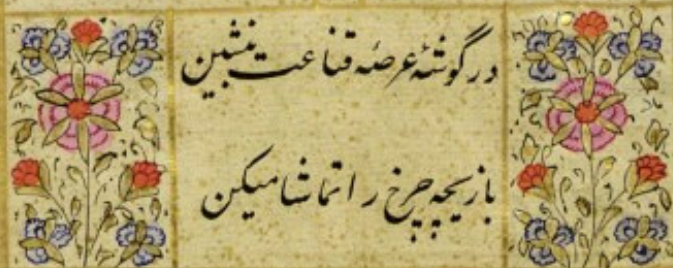 در گوشهٔ عرصهٔ قناعت بنشین
بازیچه چرخ را تماشا میکن